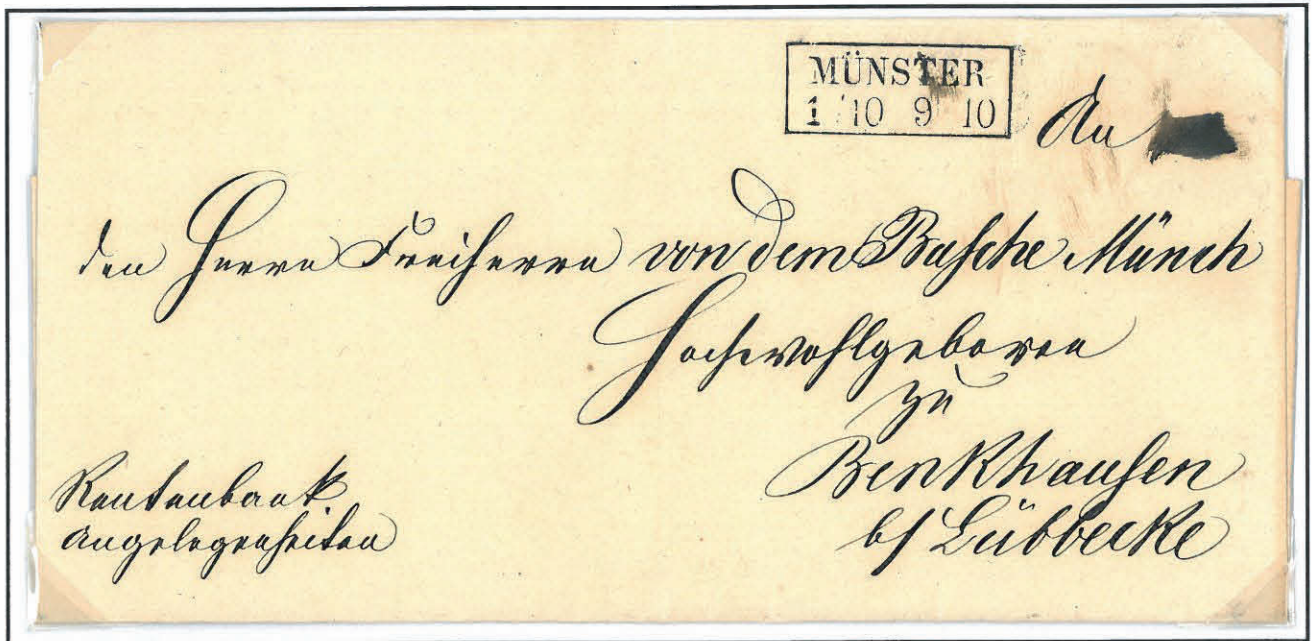 MÜNSTER
1 10 9 10
An
den Herrn Freiherrn von dem Busche Münch
Hochwohlgeboren
zu
Benkhausen
b/ Lübbecke
Rentenbank
Angelegenheiten